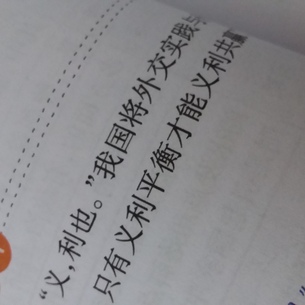 “义，利也。”我国将外交实践
只有义利平衡才能义利共赢